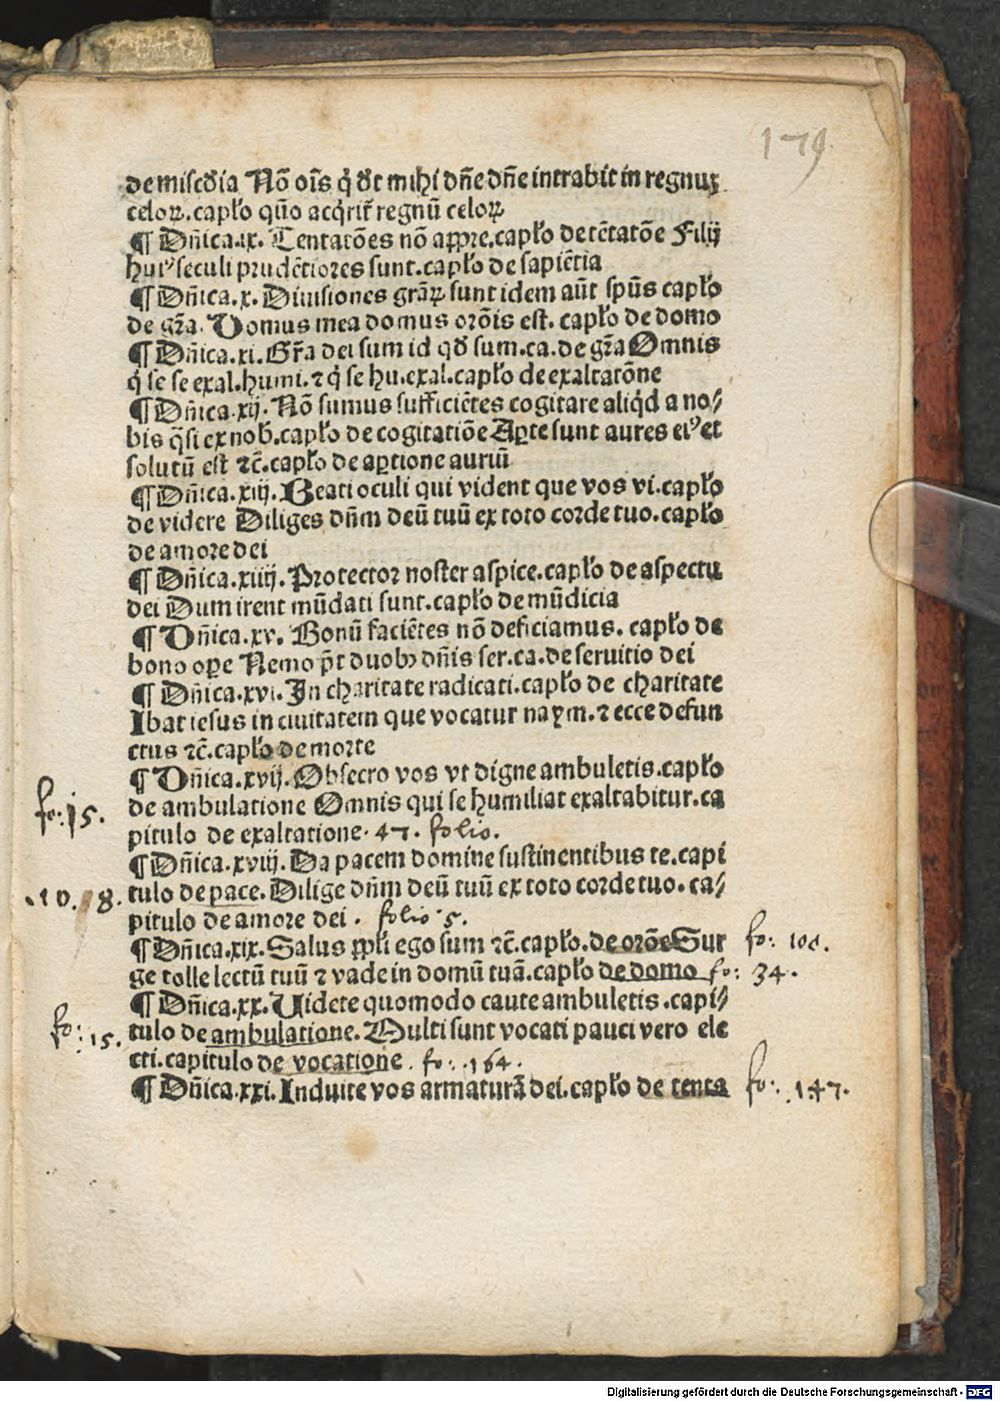 179
de misc̄dia Nō oīs q̇ dt mihi dn̄e dn̄e intrabit in regnuʒ
celoꝝ.capło quō acq̇rit̄ regnū celoꝝ
¶ Dn̄ica.ix. Tentatōes nō appre.capło de tētatōe Filij
huiꝰ seculi prudētiores sunt.capło de sapiētia
¶ Dn̄ica.x. Diuisiones gr̄aꝝ sunt idem aūt spūs capło
de gr̄a. Domus mea domus orōis est. capło de domo
¶ Dn̄ica.xi. Gr̄a dei sum id qd̄ sum.ca.de gr̄a Omnis
q̇ se se exal.humi.⁊ q̇ se hu.exal.capło de exaltatōne
¶ Dn̄ica.xij. Nō sumus sufficiētes cogitare aliq̇d a no⸗
bis q̄si ex nob̄.capło de cogitatiōe Aꝑte sunt aures eiꝰ et
solutū est ⁊c̄.capło de aꝑtione auriū
¶ Dn̄ica.xiij. Beati oculi qui vident que vos vi.capło
de videre Diliges dn̄m deū tuū ex toto corde tuo.capło
de amore dei
¶ Dn̄ica.xiiij. Protector noster aspice.capło de aspectu
dei Dum irent mūdati sunt.capło de mūdicia
¶ Dn̄ica.xv. Bonū faciētes nō deficiamus. capło de
bono oꝑe Nemo p̄t duobꝫ dn̄is ser.ca.de seruitio dei
¶ Dn̄ica.xvi. In charitate radicati.capło de charitate
Ibat iesus in ciuitatem que vocatur naym.⁊ ecce defun
ctus ⁊c̄.capło de morte
¶ Dn̄ica.xvij. Obsecro vos vt digne ambuletis.capło
fo: 15. de ambulatione Omnis qui se humiliat exaltabitur.ca
pitulo de exaltatione. 47. folio.
¶ Dn̄ica.xviij. Da pacem domine sustinentibus te.capi
108. tulo de pace. Dilige dn̄m deū tuū ex toto corde tuo. ca⸗
pitulo de amore dei. folio 5.
¶ Dn̄ica.xix. Salus ppłi ego sum ⁊c̄.capło.de orōe Sur fo: 100.
ge tolle lectū tuū ⁊ vade in domū tuā.capło de domo fo: 34.
¶ Dn̄ica.xx. Uidete quomodo caute ambuletis.capi⸗
fo: 15. tulo de ambulatione. Multi sunt vocati pauci vero ele
cti.capitulo de vocatione. fo: 164.
¶ Dn̄ica.xxi. Induite vos armaturā dei.capło de tenta fo: 147.
Digitalisierung gefördert durch die Deutsche Forschungsgemeinschaft - DFG